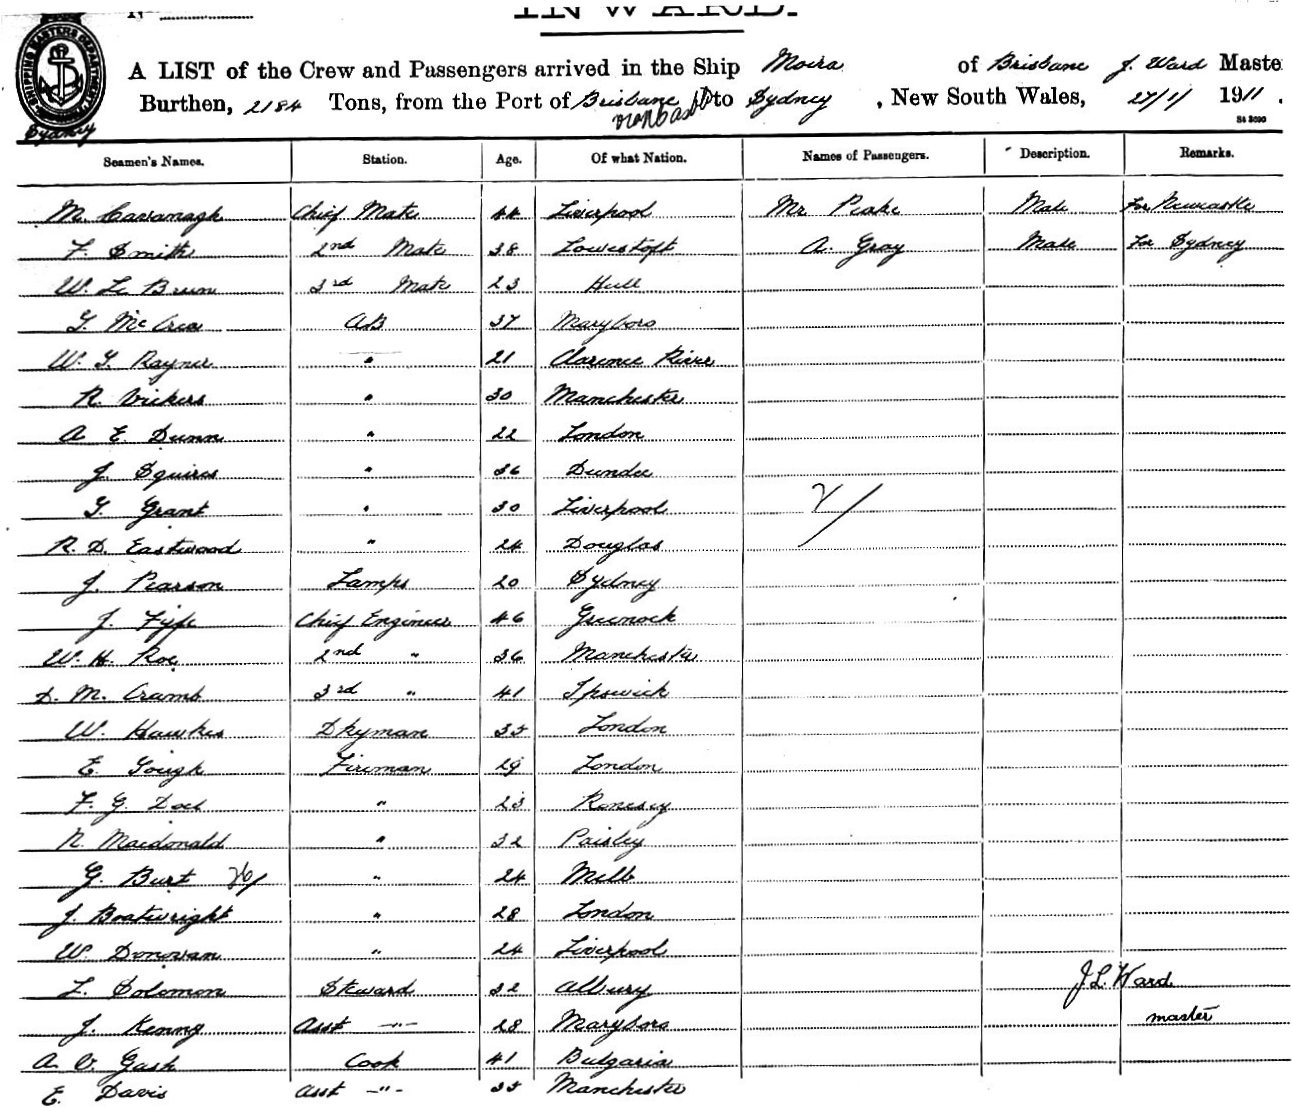 INWARD.
SHIPPING MASTERS DEPARTMENT
Sydney
A LIST of the Crew and Passengers arrived in the Ship Moira of Brisbane J. Ward Maste
Burthen, 2184 Tons, from the Port of Brisbane to Sydney, New South Wales, 27/1/ 1911.
Seamen's Names. Station. Age. Of what Nation. Names of Passengers. Description. Remarks.
M. Cavanagh Chief Mate 44 Liverpool Mr Peake Male for Newcastle
F. Smith 2nd Mate 38 Lowestoft A. Gray Male for Sydney
W. Le Brun 3rd Mate 23 Hull
McCrea AB 37 Maryboro
W. Rayner " 21 Clarence River
R. Vickers " 30 Manchester
A E Dunn " 22 London
J. Squires " 36 Dundee
Grant " 30 Liverpool
R. D. Eastwood " 24 Douglas
J. Pearson Lamps 20 Sydney
J. Fyfe Chief Engineer 46 Greenock
W. H. Roe 2nd " 36 Manchester
D. M. Cramb 3rd " 41 Ipswich
W. Hawkes Dkyman 35 London
E. Gough Fireman 29 London
F. G. " 23
N. Macdonald " 32 Paisley
G. Burt 26/ " 24 Melb
J. Boatwright " 28 London
W. Donovan " 24 Liverpool
L. Solomon Steward 32 Albury
J. L. Ward
J. Kenny Asst -"- 28 Maryboro
master
A. V. Gash Cook 41 Bulgaria
E. Davis Asst -"- 35 Manchester